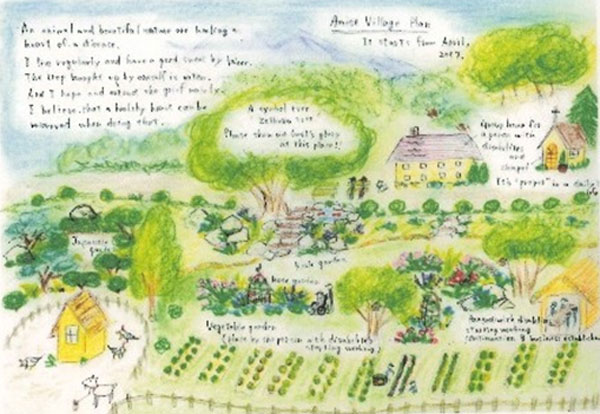 An animal and beautiful nature are healing a
heart of a disease.
I live regularly and have a good sweat by labor.
The crop bought up by oneself is eaten.
And I hope and extend the grief mainly.
I believe that a healthy heart can be
recovered when doing that.
Annise Village Plan
It starts from April,
2007.
A symbol tree
Please show me God's glory
at this place!!
Group home for
a person with
disabilities
and
chapel
is a daily
Japanese
garden
Bible garden
Rose garden
Vegetable garden
(place by the person with disabilities
starting working)
starting working
continuation B business establishment